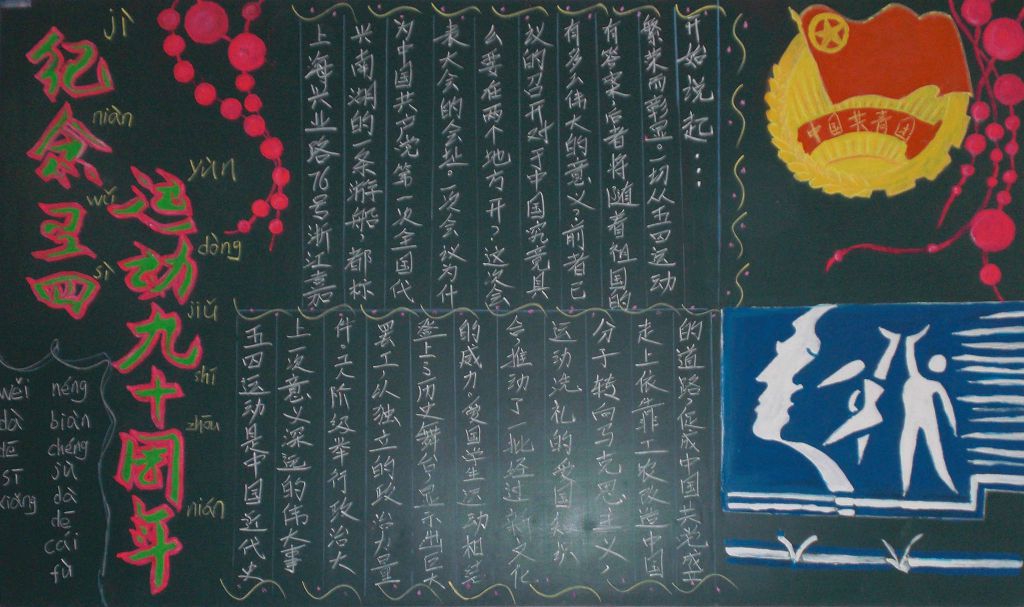 纪念五四
jì
niàn
wǔ
sì
运动九十周年
yùn
dòng
jiǔ
shí
zhōu
nián
上海兴业路76号浙江嘉
兴南湖的一条游船,都标
为中国共产党第一次全国代
表大会的会址。一次会议为什
么要在两个地方开?这次会
议的召开对于中国究竟具
有多么伟大的意义?前者已
有答案,后者将随着祖国的
繁荣而彰显。一切从五四运动
开始说起…
中国共青团
五四运动是中国近代史
上一次意义深远的伟大事
件。工人阶级举行政治大
罢工以独立的政治力量
登上了历史舞台,显示出巨大
的威力。爱国学生运动相结
合,推动了一批经过新文化
运动洗礼的爱国知识
分子转向马克思主义,
走上依靠工农改造中国
的道路促成中国共党盛
wěi
dà
dē
sī
xiǎng
néng
biàn
chéng
sù
dà
dē
cái
fù